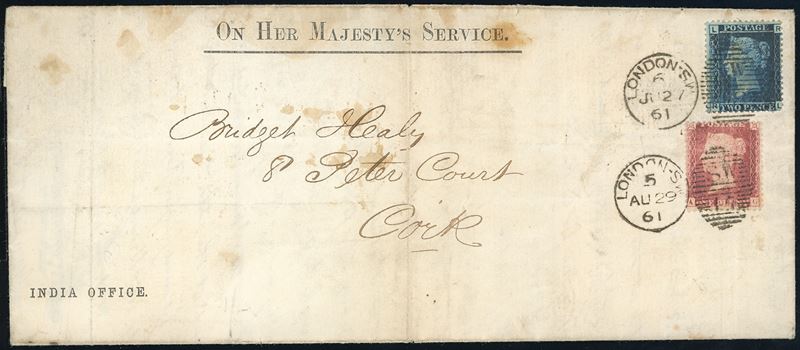 ON HER MAJESTY'S SERVICE.
L R
POSTAGE
TWO PENCE
R L
LONDON-SW
6
JU 27
61
Bridget Healy
8 Peter Court
Cork
POSTAGE
LONDON-SW
5
AU 29
61
INDIA OFFICE.